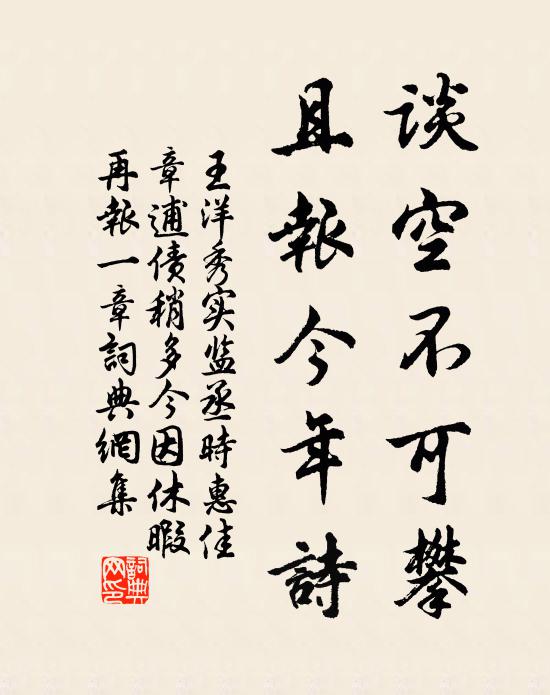 談空不可攀
且報今年詩
王洋秀实监丞時惠佳
章逋债稍多今因休暇
再報一章詞典網集
詞典网印